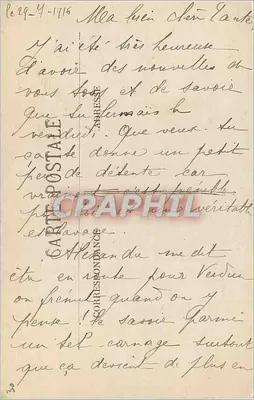 le 29-7-1916
Ma bien chère Tante,
J'ai été très heureuse
d'avoir des nouvelles de
vous tous et de savoir
que tu fermais le
vendredi. Que veux-tu
ça te donne un petit
peu de détente car
vraiment c'est pénible
véritable
esclavage.
Alexandre me dit
être en route pour Verdun
on frémit quand on y
pense! le savoir parmi
un tel carnage surtout
que ça devient de plus en
CARTE POSTALE
CORRESPONDANCE
ADRESSE
CPAPHIL